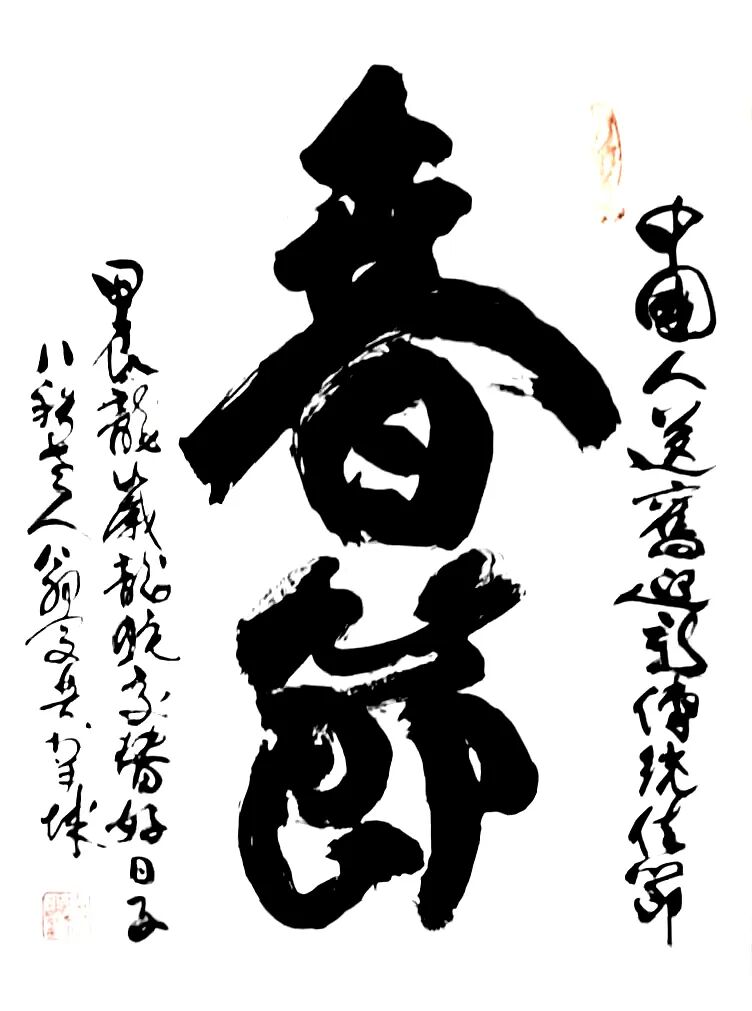 中國人送舊迎新傳統佳節
春節
甲辰龍歲龍晥交替好日子
八秩老人翁文兵於羊城